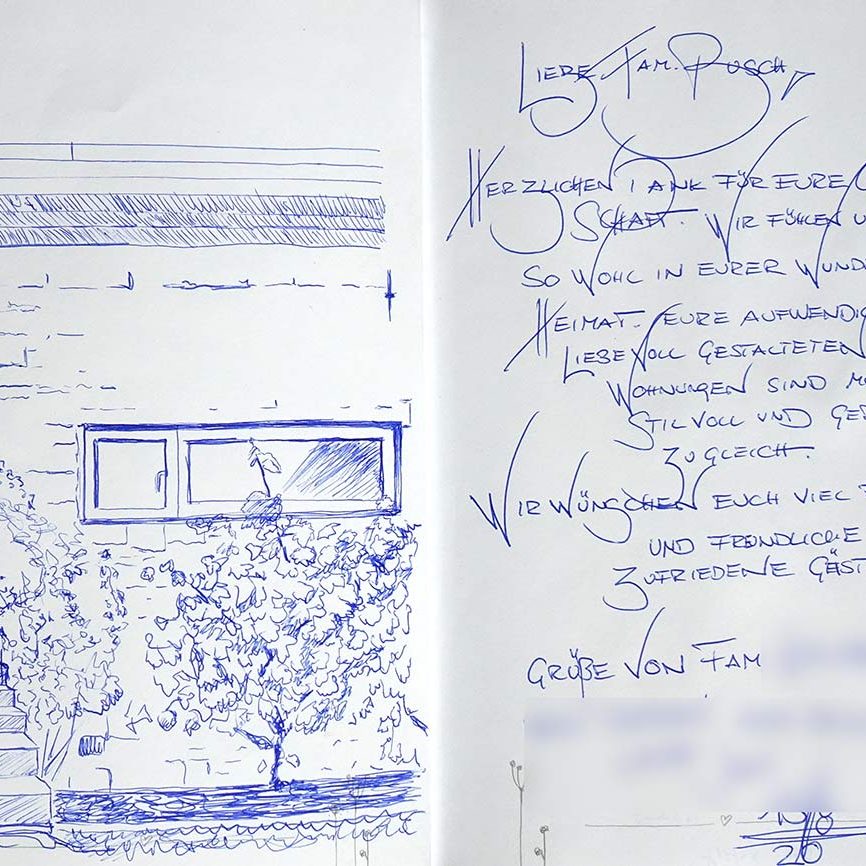 LIEBE FAM.
HERZLICHEN DANK FÜR EURE
SCHAFT. WIR FÜHLEN U
SO WOHL IN EURER WUND
HEIMAT. EURE AUFWENDIG
LIEBEVOLL GESTALTETEN
WOHNUNGEN SIND
STILVOLL UND GE
ZUGLEICH.
WIR WÜNSCHEN EUCH VIEL
UND FREUNDLICHE
ZUFRIEDENE GÄST
GRÜßE VON FAM
20